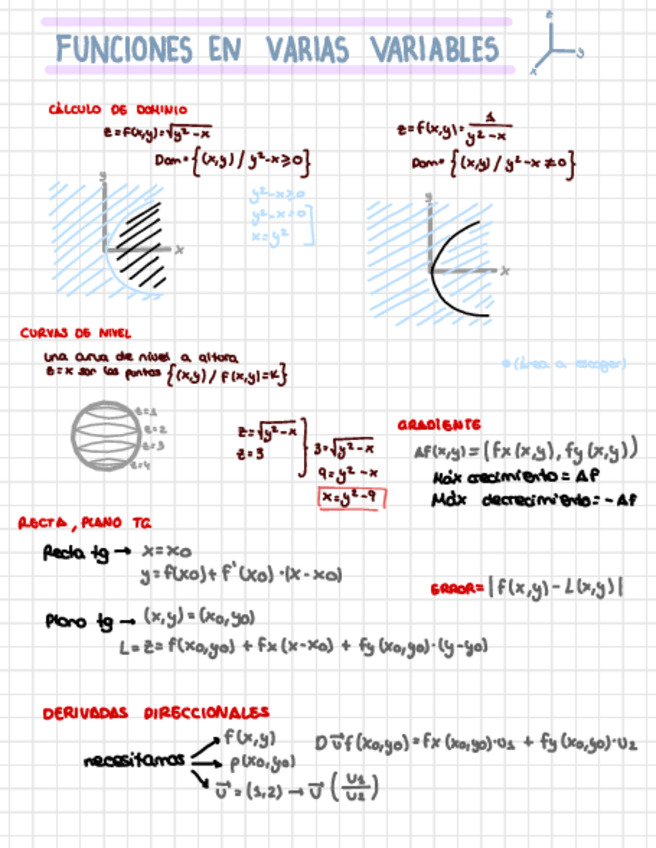 FUNCIONES EN VARIAS VARIABLES
z
y
x
CÁLCULO DE DOMINIO
z=f(x,y)=√(y²-x)
Dom={(x,y) / y²-x≥0}
y
x
y²-x≥0
y²-x=0
x=y²
z=f(x,y)=1/(y²-x)
Dom={(x,y) / y²-x≠0}
x
CURVAS DE NIVEL
una curva de nivel a altura
z=k son los puntos {(x,y) / f(x,y)=k}
(área a escoger)
z=1
z=2
z=3
z=4
z=√(y²-x)
z=3
3=√(y²-x)
9=y²-x
x=y²-9
GRADIENTE
Δf(x,y)=(fx(x,y), fy(x,y))
Máx crecimiento=Δf
Máx decrecimiento=-Δf
RECTA, PLANO TG
Recta tg → x=x0
y=f(x0)+f'(x0)·(x-x0)
ERROR=|f(x,y)-L(x,y)|
Plano tg → (x,y)=(x0,y0)
L=z=f(x0,y0)+fx(x-x0)+fy(x0,y0)·(y-y0)
DERIVADAS DIRECCIONALES
necesitamos
f(x,y)
p(x0,y0)
u⃗=(1,2)→u⃗(u1/u2)
Du⃗f(x0,y0)=fx(x0,y0)·u1+fy(x0,y0)·u2